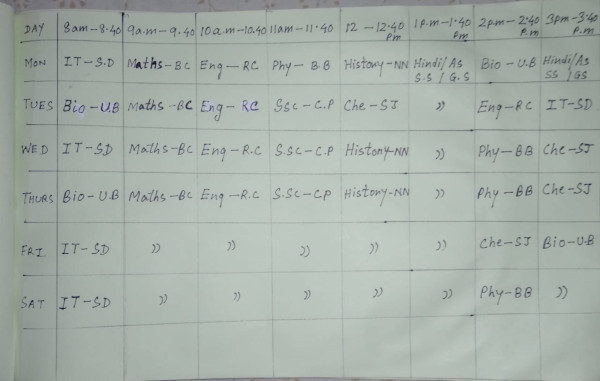 DAY 8am-8.40 9a.m-9.40 10a.m-10.40 11am-11.40 12-12.40 p.m 1p.m-1.40 p.m 2p.m-2.40 p.m 3p.m-3.40 p.m
MON IT-S.D Maths-BC Eng-RC Phy-BB History-NN Hindi/As S.S/G.S Bio-U.B Hindi/As SS/GS
TUES Bio-U.B Maths-BC Eng-RC SSc-C.P Che-SJ " Eng-RC IT-SD
WED IT-SD Maths-BC Eng-R.C S.Sc-C.P History-NN " Phy-BB Che-SJ
THURS Bio-U.B Maths-BC Eng-R.C S.Sc-CP History-NN " Phy-BB Che-SJ
FRI IT-SD " " " " " Che-SJ Bio-U.B
SAT IT-SD " " " " " Phy-BB "